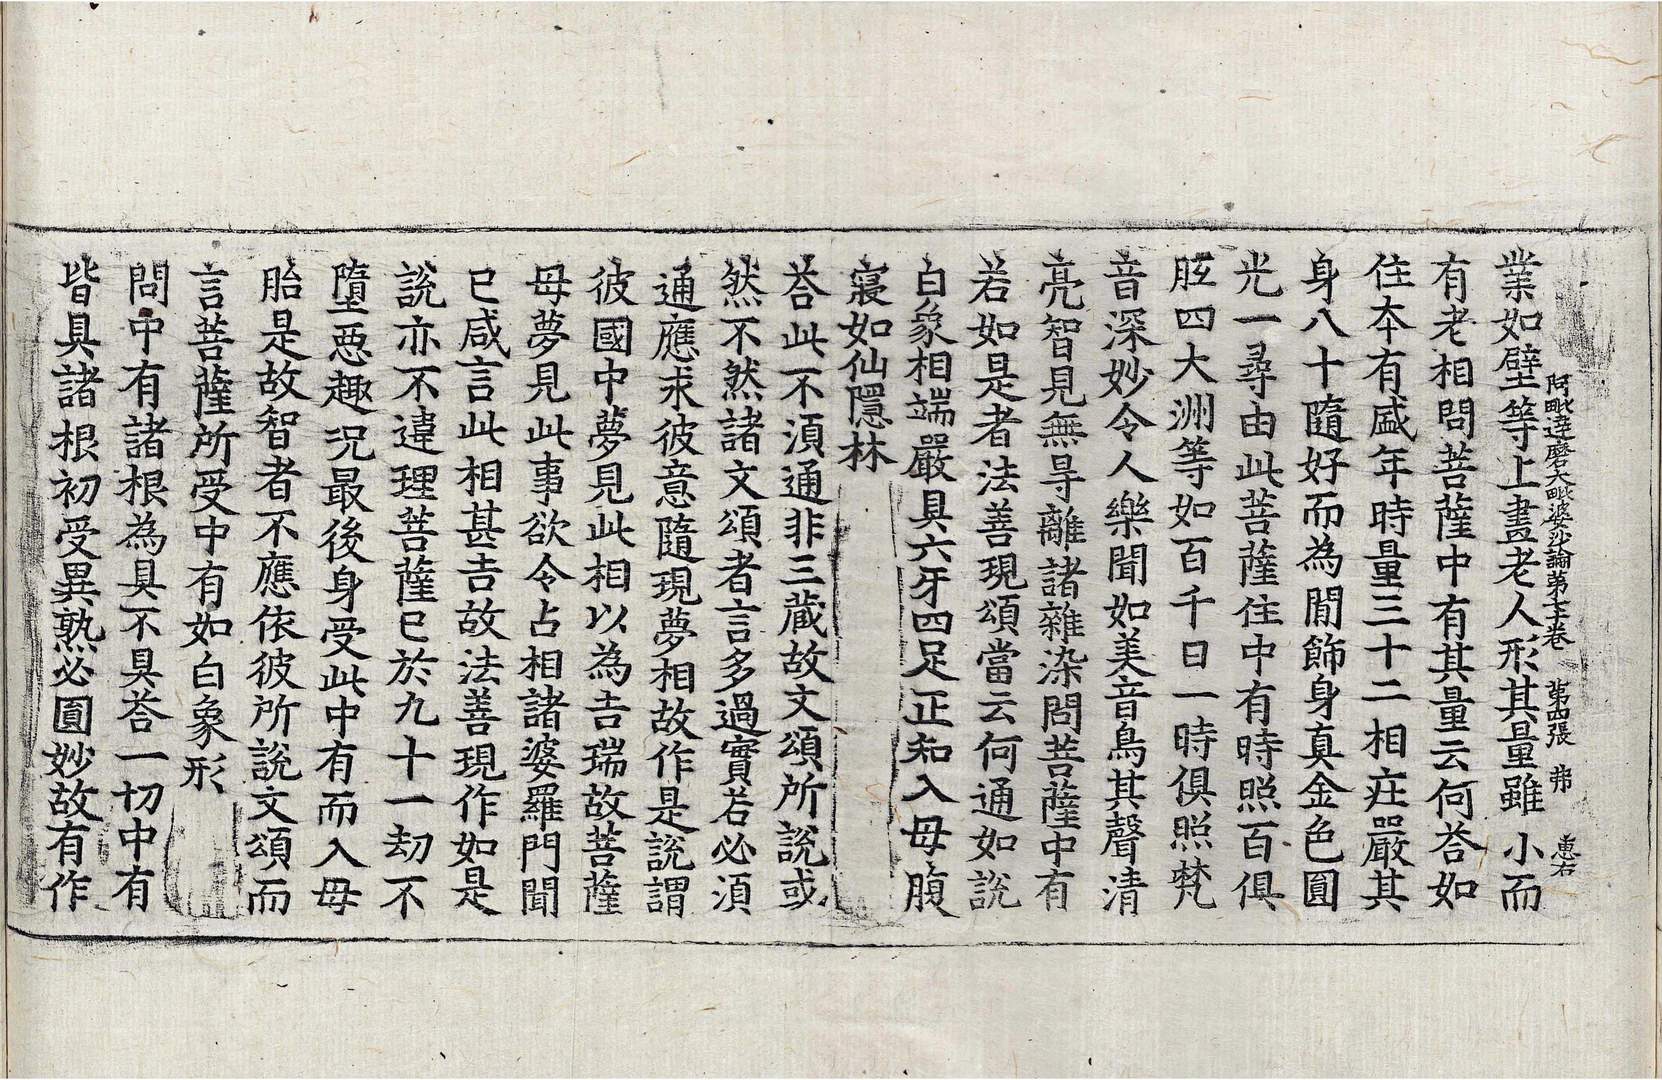 阿毗達磨大毗婆沙論第七十卷 第四張 弗 惠右
業如壁等上畫老人形其量雖小而
有老相問菩薩中有其量云何荅如
住本有盛年時量三十二相㽵嚴其
身八十隨好而為閒飾身真金色圓
光一尋由此菩薩住中有時照百俱
胝四大洲等如百千日一時俱照梵
音深妙令人樂聞如美音鳥其聲清
亮智見無㝵離諸雜染問菩薩中有
若如是者法善現頌當云何通如說
白象相端嚴具六牙四足正知入母腹
寢如仙隱林
荅此不須通非三藏故文頌所說或
然不然諸文頌者言多過實若必須
通應求彼意隨現夢相故作是說謂
彼國中夢見此相以為吉瑞故菩薩
母夢見此事欲令占相諸婆羅門聞
已咸言此相甚吉故法善現作如是
說亦不違理菩薩已於九十一劫不
墮惡趣况最後身受此中有而入母
胎是故智者不應依彼所說文頌而
言菩薩所受中有如白象形
問中有諸根為具不具荅一切中有
皆具諸根初受異熟必圓妙故有作